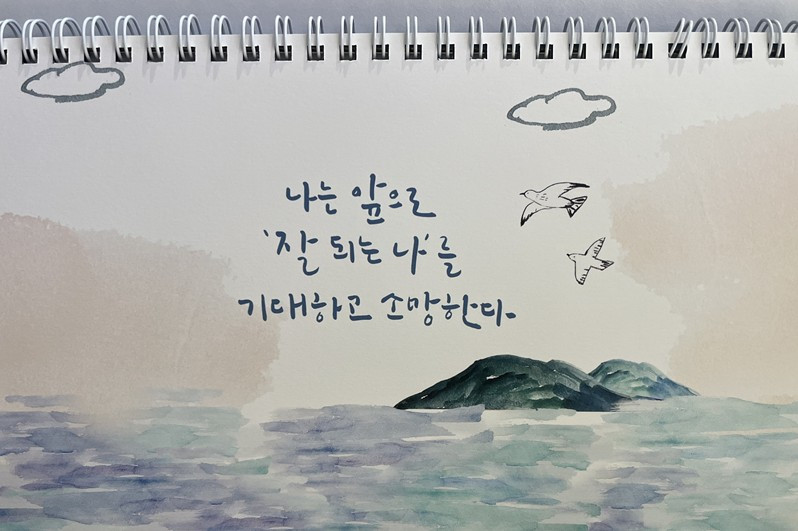 나는 앞으로
'잘 되는 나'를
기대하고 소망한다.